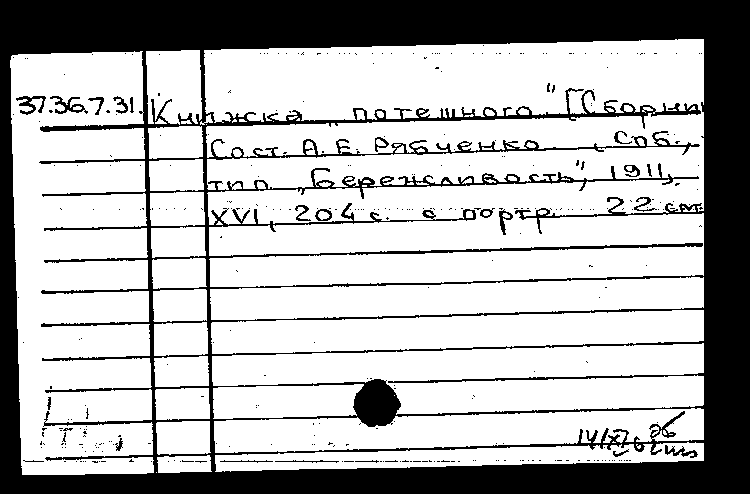 37.36.7.31. Книжка „потешного" [Сборни
Сост. А. Е. Рябченко. Спб.,
тип. „Бережливость", 1911.
XVI, 204 с. с портр. 22 см
14/XI